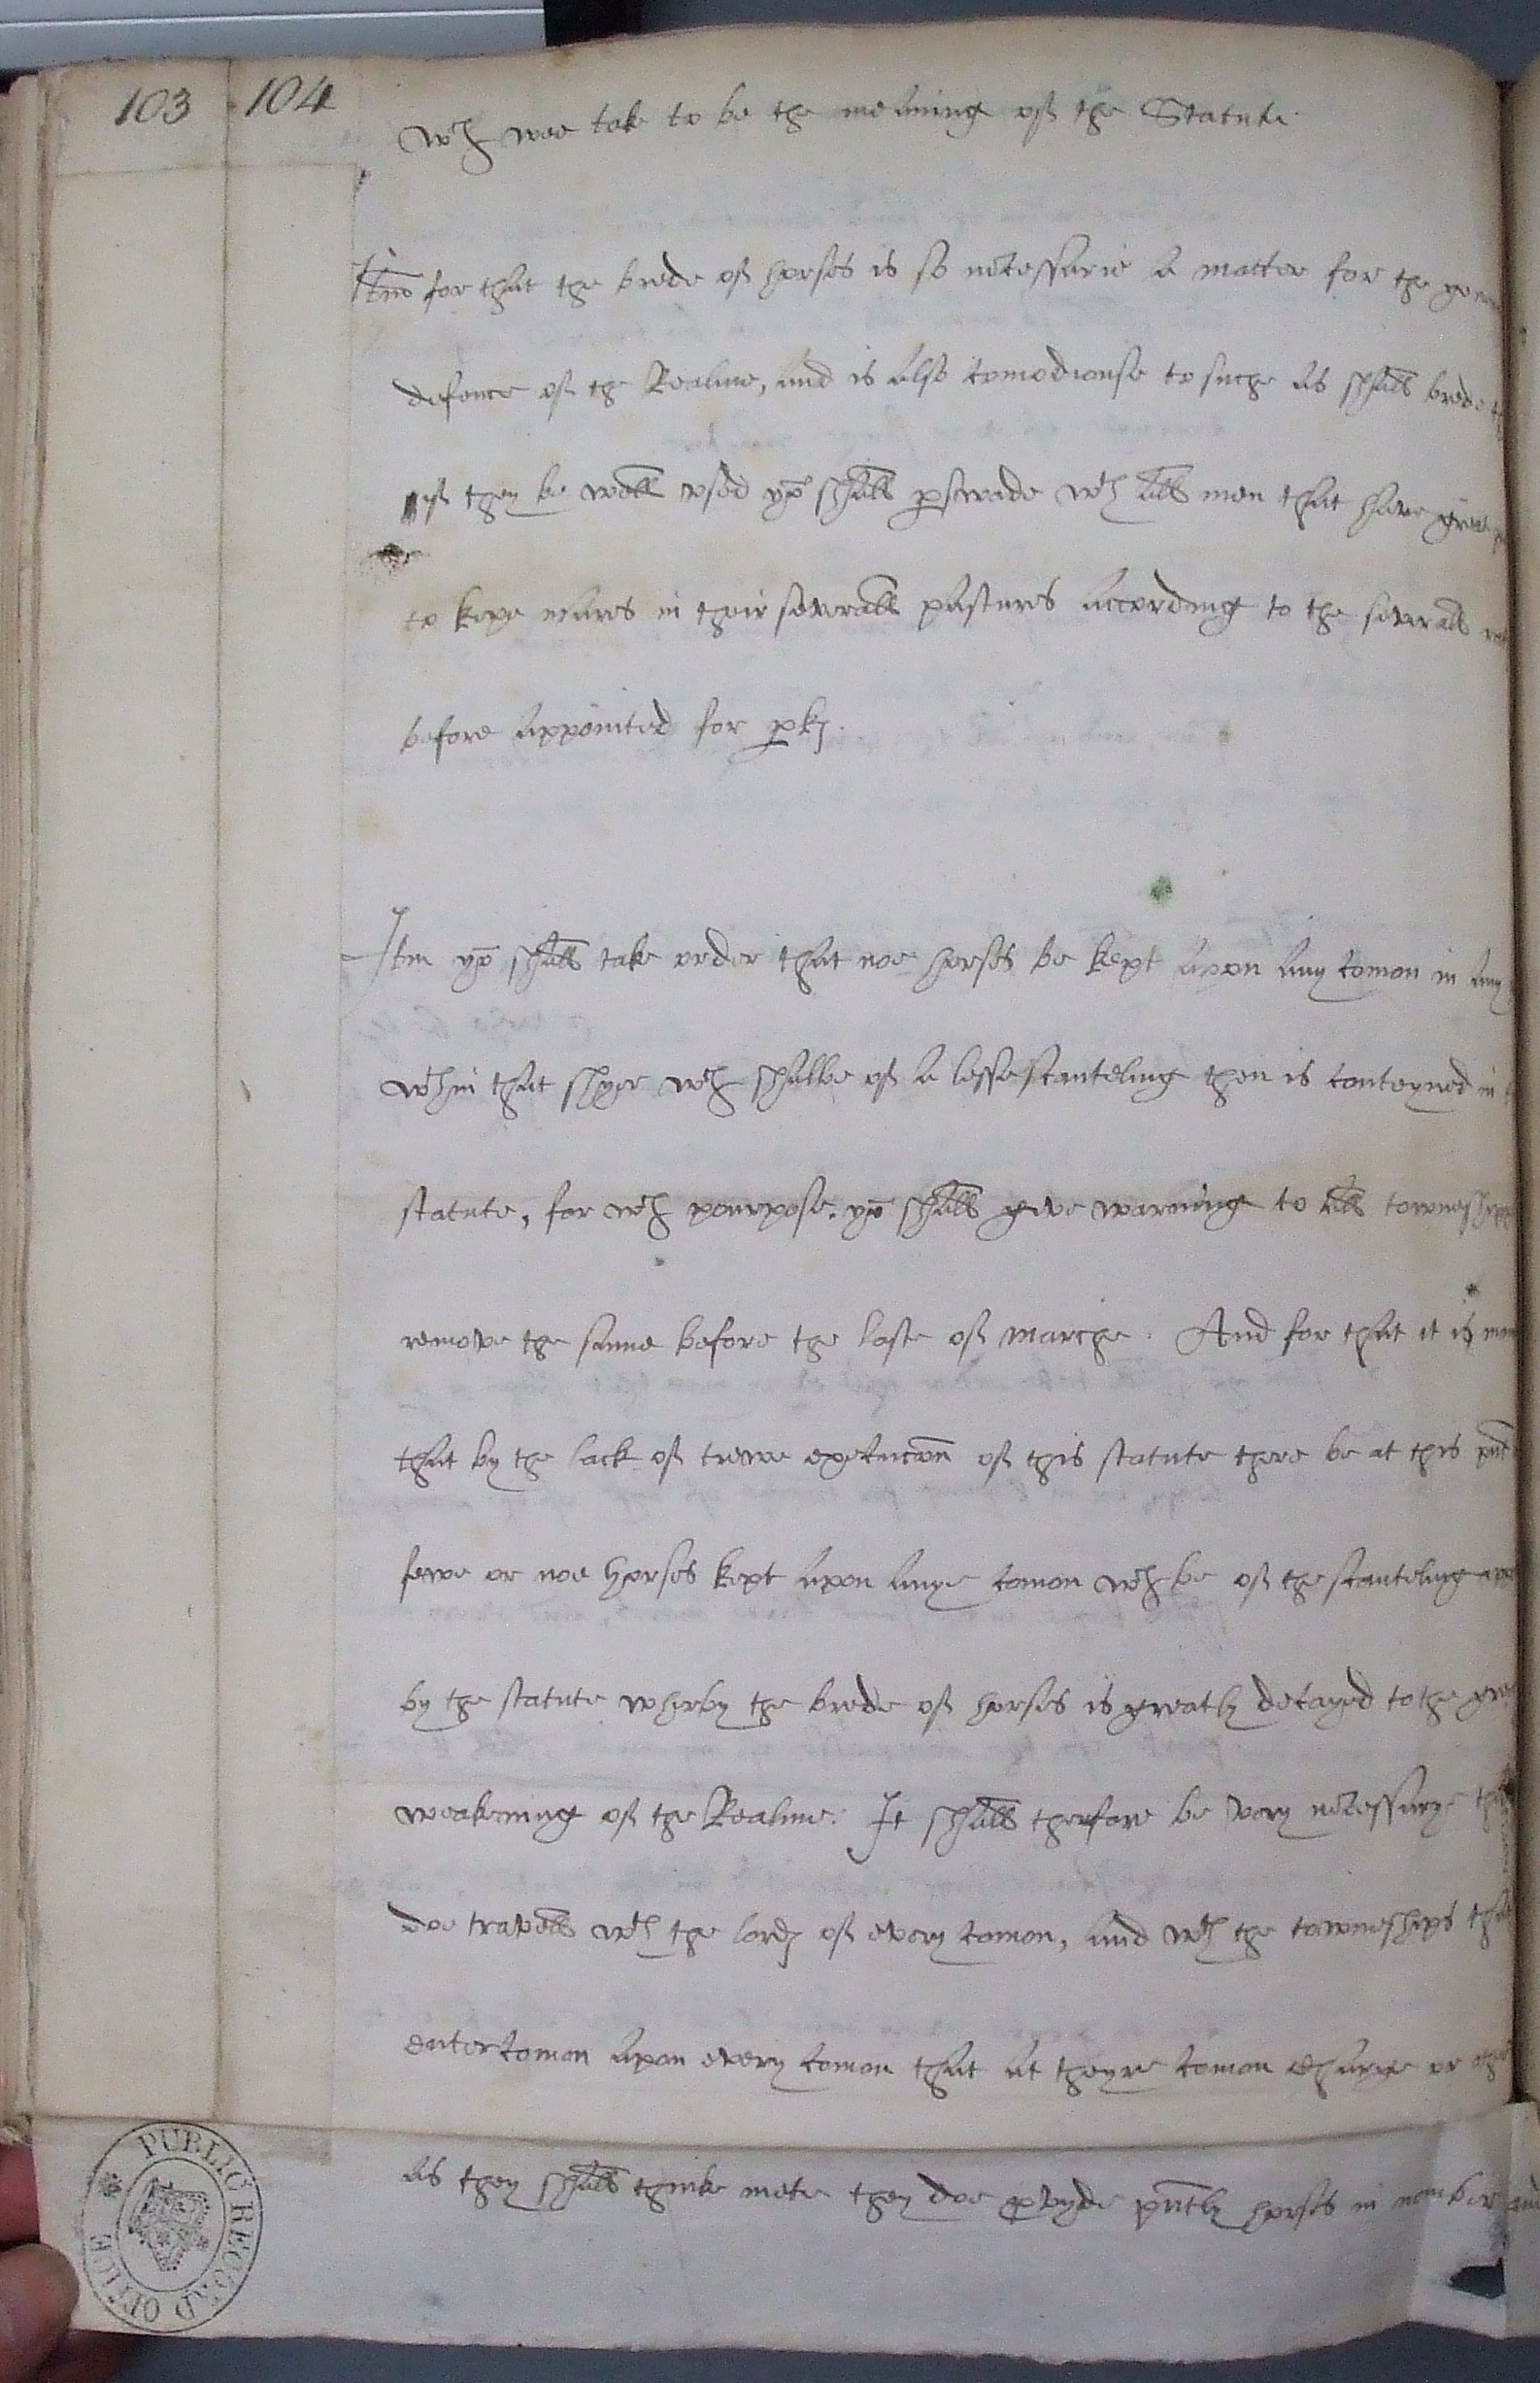 103 104
wch wee take to be the meaning of the Statute.
Itm for that the brede of horses is so necessarie a matter for the
defence of the Realme, and is also comodiouse to suche as shall brede
yf they be well vsed yo shall pswade wth all men that have
to kepe mares in their severall pastures according to the severall
before appointed for pks.
Itm yo shall take order that noe horses be kept upon any comon in any
wthin that shyer wch shalbe of a lesse scanteling then is conteyned in
statute, for wch pourpose yo shall geve warning to all
remove the same before the laste of marche. And for that it is
that by the lack of trewe execucon of this statute there be at this pnt
fewe or noe horses kept upon anye comon wch be of the scanteling
by the statute wherby the brede of horses is greatly decayed to the
weakening of the Realme. It shall therfore be very necessarye
doe travell wth the lords of every comon, and wth the towneships
entercomon upon every comon that at theyre comon charge or
as they shall thinke mete they doe pvyde pntly horses in nomber and
PUBLIC RECORD OFFICE